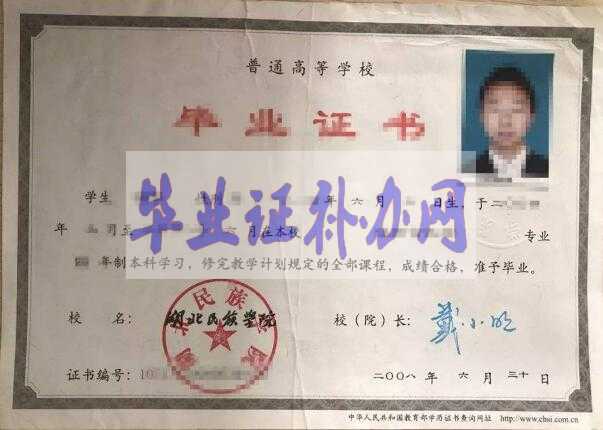 普通高等学校
毕业证书
学生 年六月 日生，于二
年 月至 六月在本校 专业
年制本科学习，修完教学计划规定的全部课程，成绩合格，准予毕业。
毕业证补办网
校 名：湖北民族学院 校（院）长：戴小明
证书编号：10 二〇〇八年 六 月 三十 日
中华人民共和国教育部学历证书查询网址 http://www.chsi.com.cn